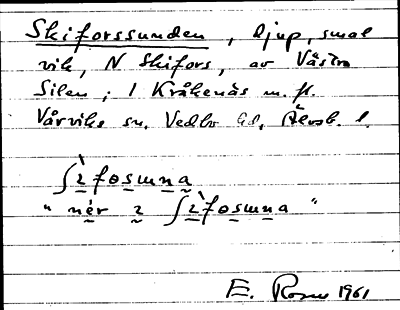 Skiforssunden, djup, smal
vik, N Skifors, av Västra
Silen; 1 Kråkenäs m. fl.
Vårviks sn. Vedbo hd, Älvsb. l.
ʃìfosuɴa
"nér i ʃìfosuɴa"
E. 1961